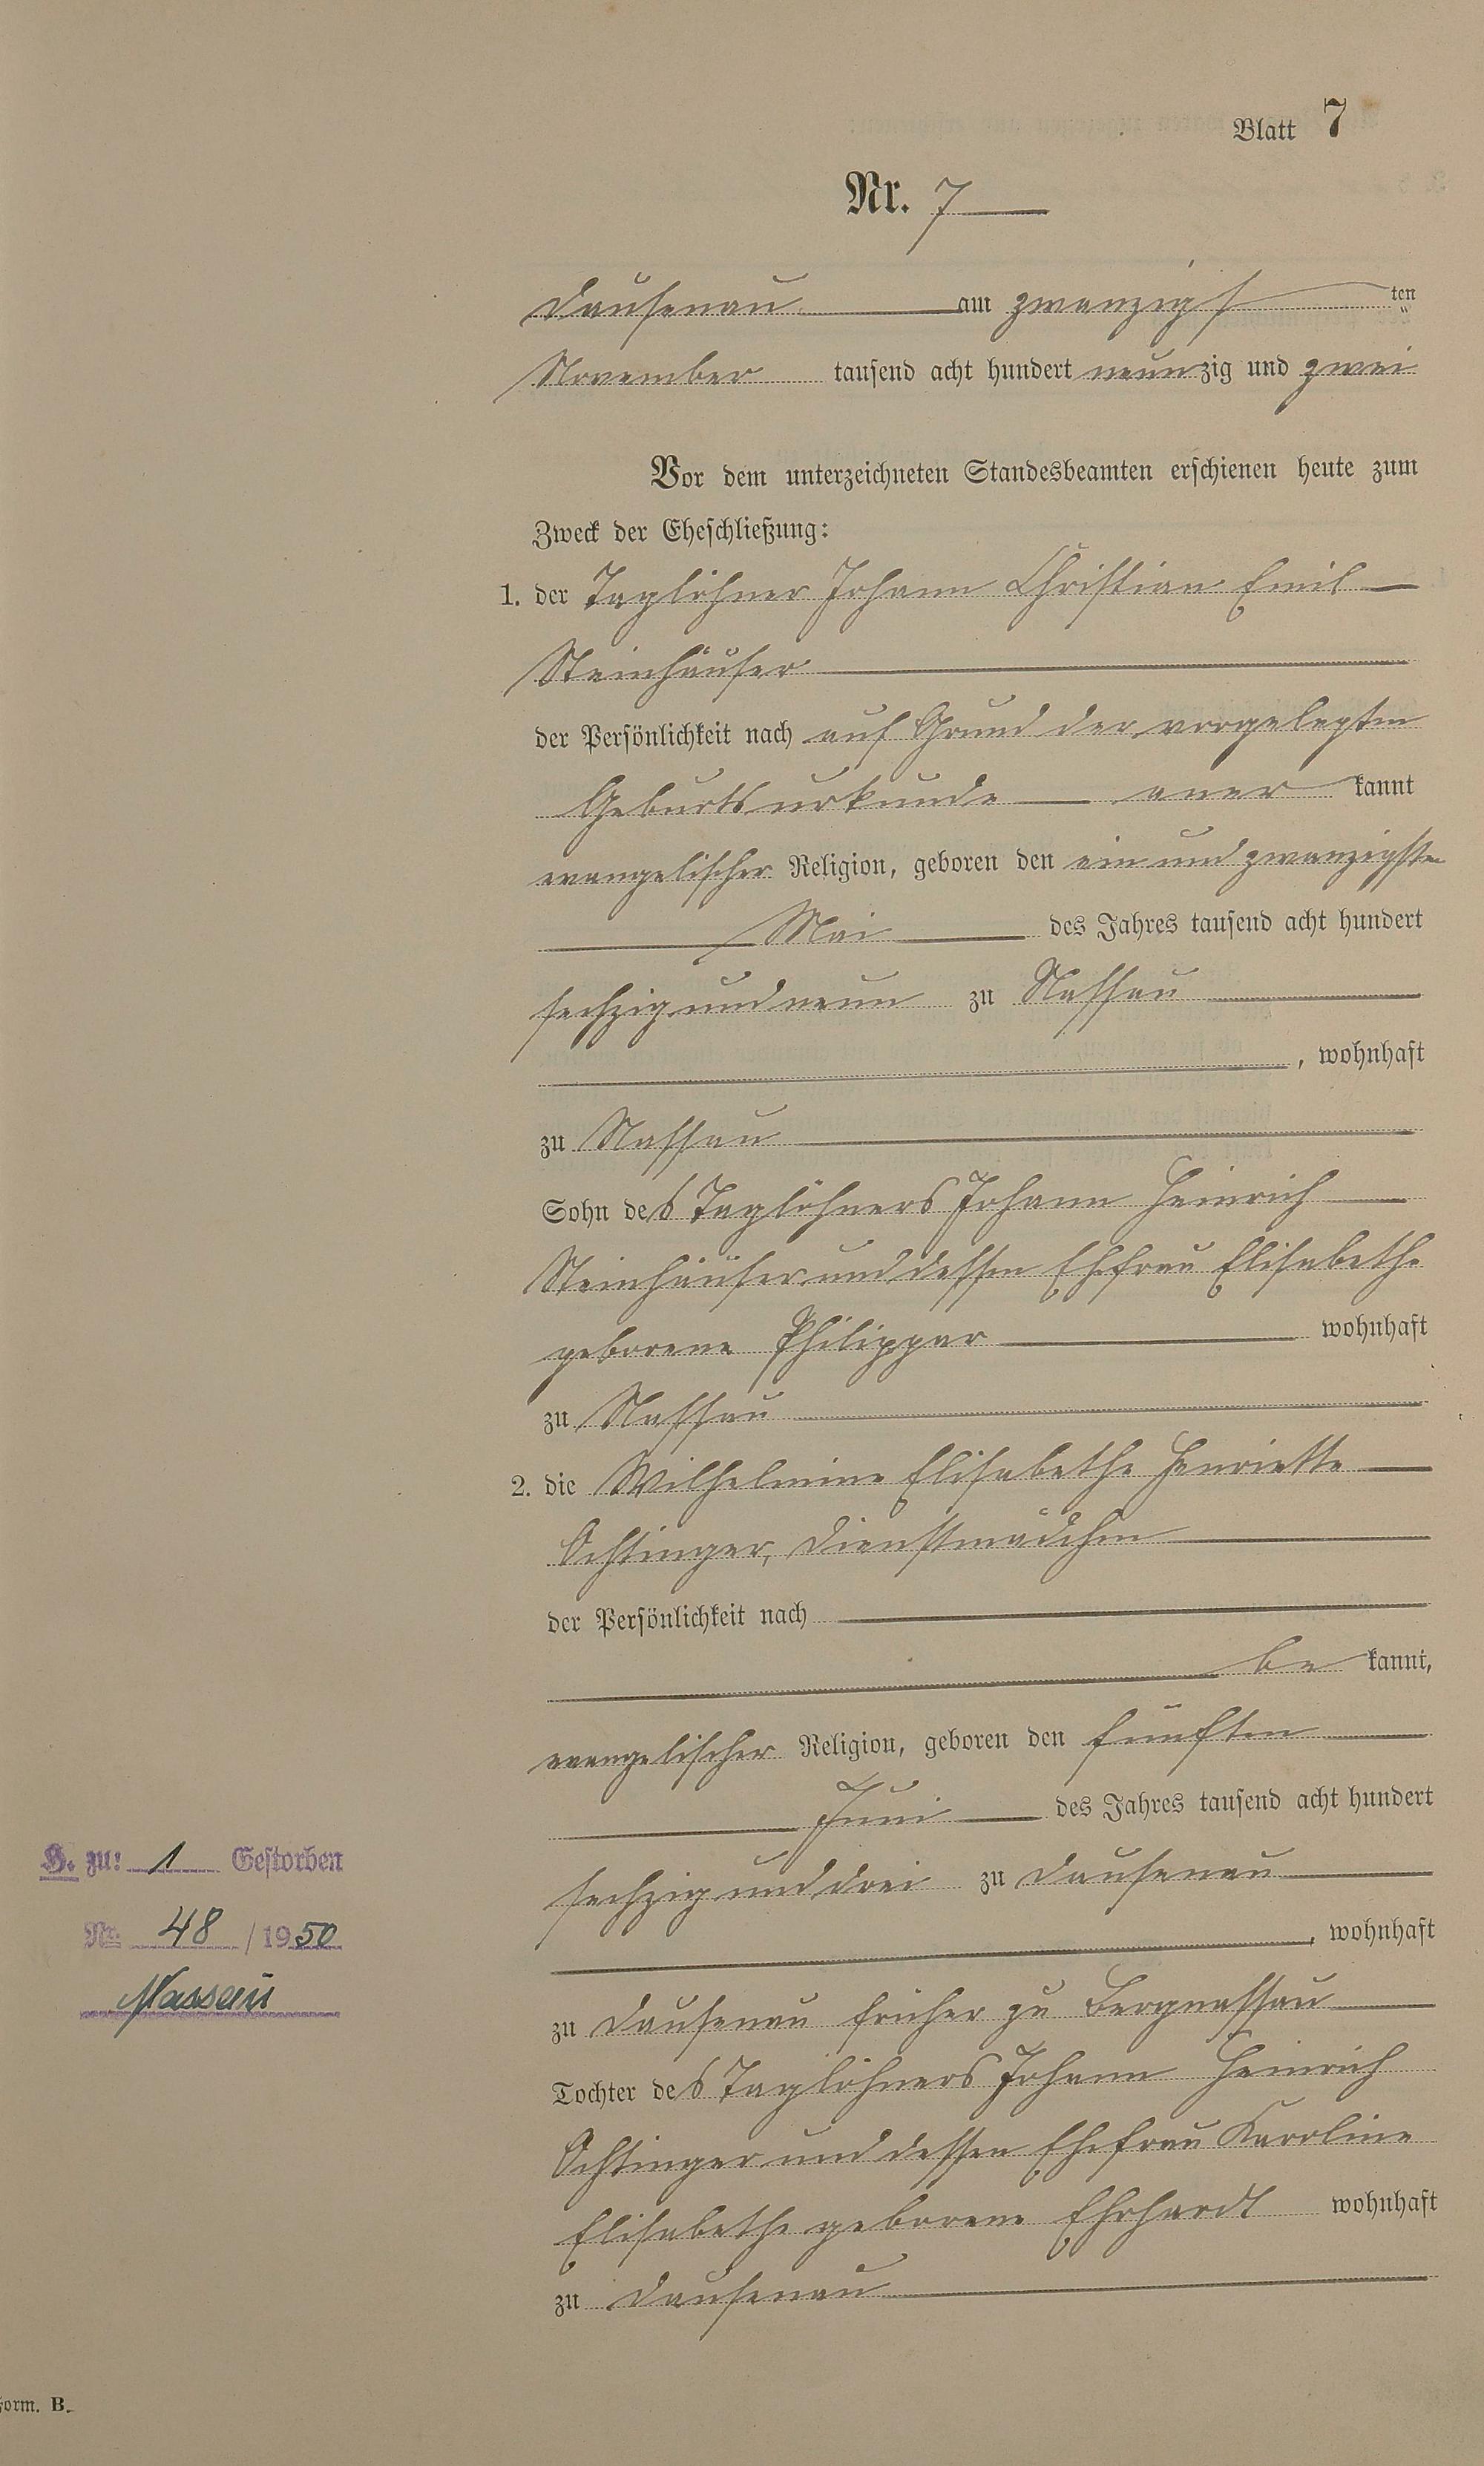 Blatt 7
Nr. 7
Dausenau am zwanzigsten
November tausend acht hundert neunzig und zwei
Vor dem unterzeichneten Standesbeamten erschienen heute zum
Zweck der Eheschließung:
1. der Taglöhner Johann Christian Emil
Steinhäuser
der Persönlichkeit nach auf Grund der vorgelegten
Geburtsurkunde anerkannt
evangelischer Religion, geboren den ein und zwanzigsten
Mai des Jahres tausend acht hundert
sechzig und neun zu Nassau
, wohnhaft
zu Nassau
Sohn des Taglöhners Johann Heinrich
Steinhäuser und dessen Ehefrau Elisabethe
geborene Philippar wohnhaft
zu Nassau
2. die Wilhelmine Elisabethe Henriette
Ochtinger, Dienstmädchen
der Persönlichkeit nach
bekannt,
evangelischer Religion, geboren den fünften
Juni des Jahres tausend acht hundert
sechzig und drei zu Dausenau
, wohnhaft
zu Dausenau früher zu Bergnassau
Tochter des Taglöhners Johann Heinrich
Ochtinger und dessen Ehefrau Karoline
Elisabethe geborene Ehrhardt wohnhaft
zu Dausenau
H. zu: 1 Gestorben
Nr. 48 / 1950
Nassau
Form. B.